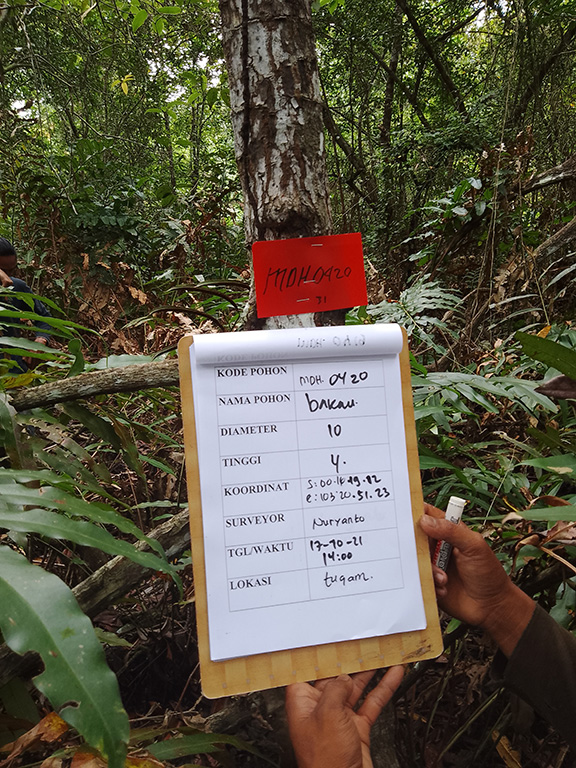 MDH 0420
31
KODE POHON MDH. 0420
NAMA POHON bakau.
DIAMETER 10
TINGGI 4.
KOORDINAT
e: 103°20.51.23
SURVEYOR Nuryanto
TGL/WAKTU 17-10-21
14:00
LOKASI tugam.